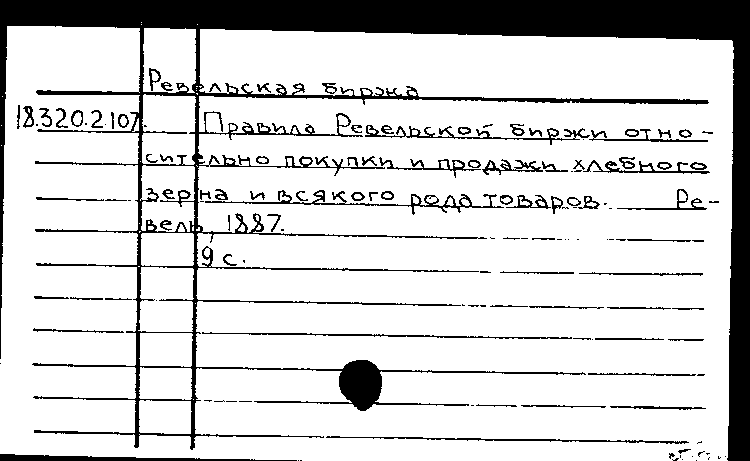 Ревельская биржа
18.320.2.107. Правила Ревельской биржи отно-
сительно покупки и продажи хлебного
зерна и всякого рода товаров. Ре-
вель, 1887.
9 с.